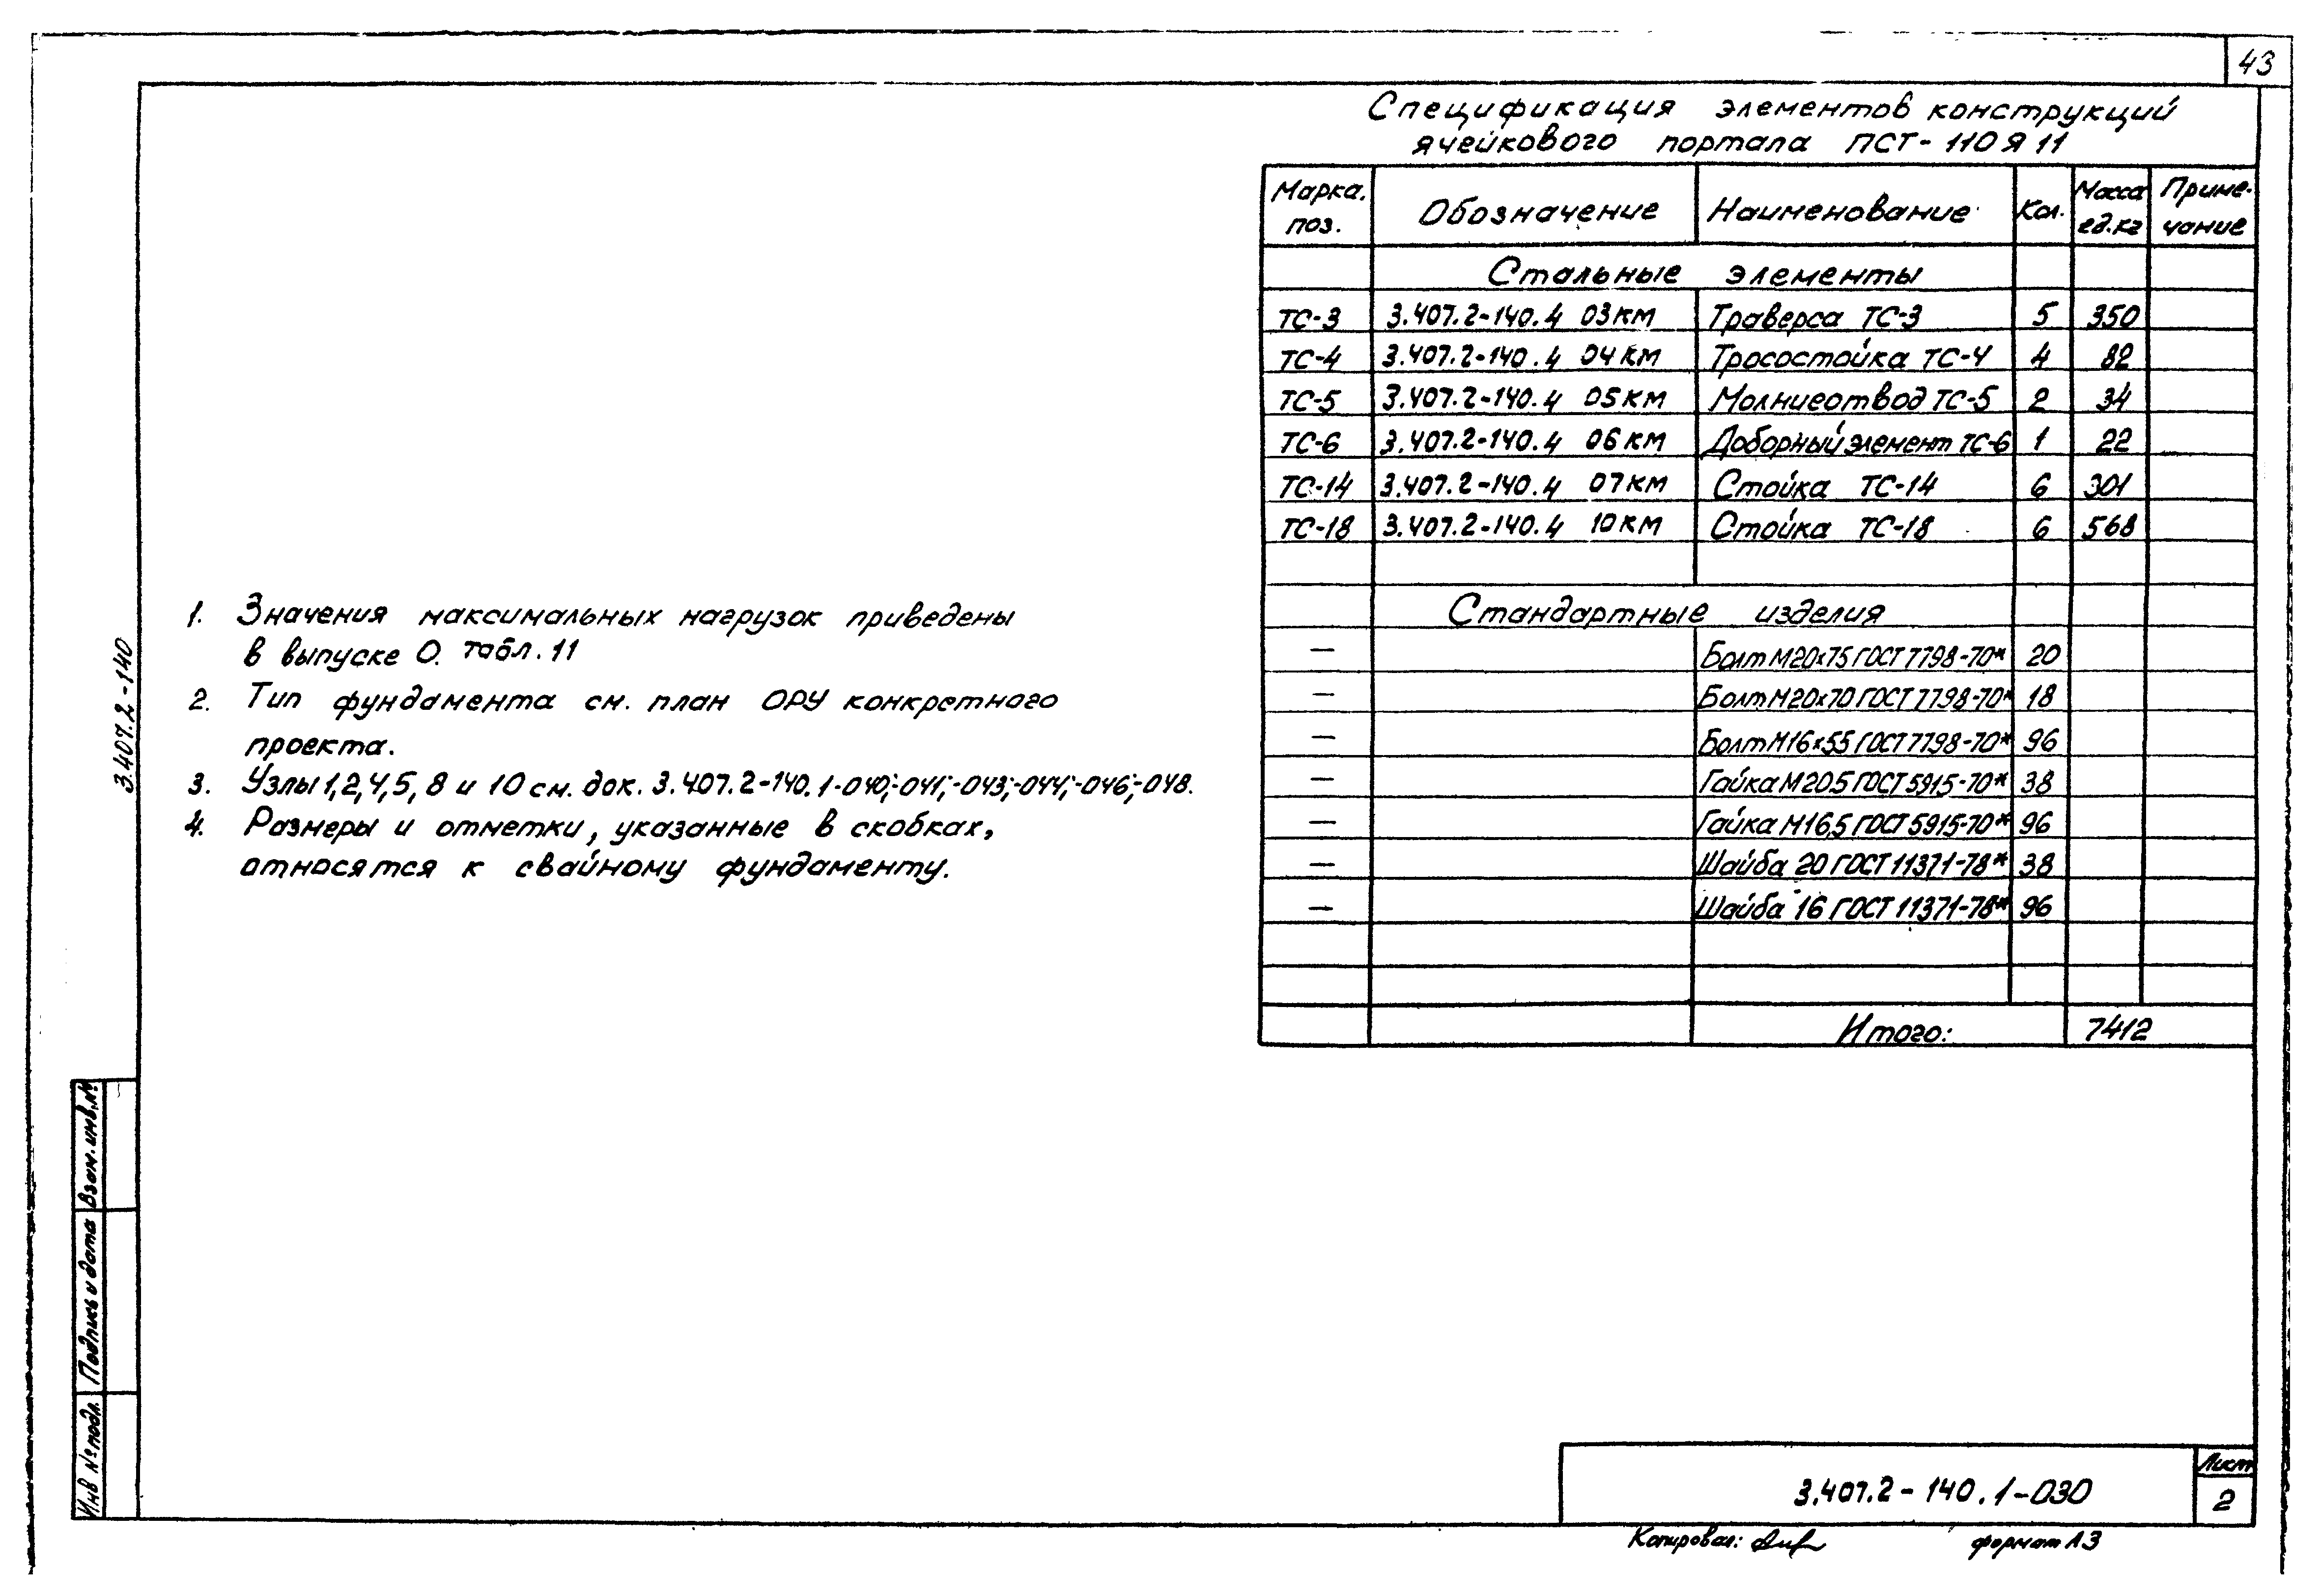 43
Спецификация элементов конструкций
ячейкового портала ПСТ-110Я11
Марка, поз. Обозначение Наименование Кол. Масса ед.кг Приме-чание
Стальные элементы
ТС-3 3.407.2-140.4 03КМ Траверса ТС-3 5 350
ТС-4 3.407.2-140.4 04КМ Тросостойка ТС-4 4 82
ТС-5 3.407.2-140.4 05КМ Молниеотвод ТС-5 2 34
ТС-6 3.407.2-140.4 06КМ Доборный элемент ТС-6 1 22
ТС-14 3.407.2-140.4 07КМ Стойка ТС-14 6 301
ТС-18 3.407.2-140.4 10КМ Стойка ТС-18 6 568
Стандартные изделия
— Болт М20х75 ГОСТ 7798-70* 20
— Болт М20х70 ГОСТ 7798-70* 18
— Болт М16х55 ГОСТ 7798-70* 96
— Гайка М20.5 ГОСТ 5915-70* 38
— Гайка М16,5 ГОСТ 5915-70* 96
— Шайба 20 ГОСТ 11371-78* 38
— Шайба 16 ГОСТ 11371-78* 96
Итого: 7412
1. Значения максимальных нагрузок приведены
в выпуске 0. табл.11
2. Тип фундамента см. план ОРУ конкретного
проекта.
3. Узлы 1,2,4,5, 8 и 10 см. док. 3.407.2-140.1-040;-041;-043;-044;-046;-048.
4. Размеры и отметки, указанные в скобках,
относятся к свайному фундаменту.
3.407.2-140
Взам. инв.№
Подпись и дата
Инв № подл.
3.407.2-140.1-030
Лист
2
Копировал:
формат А3